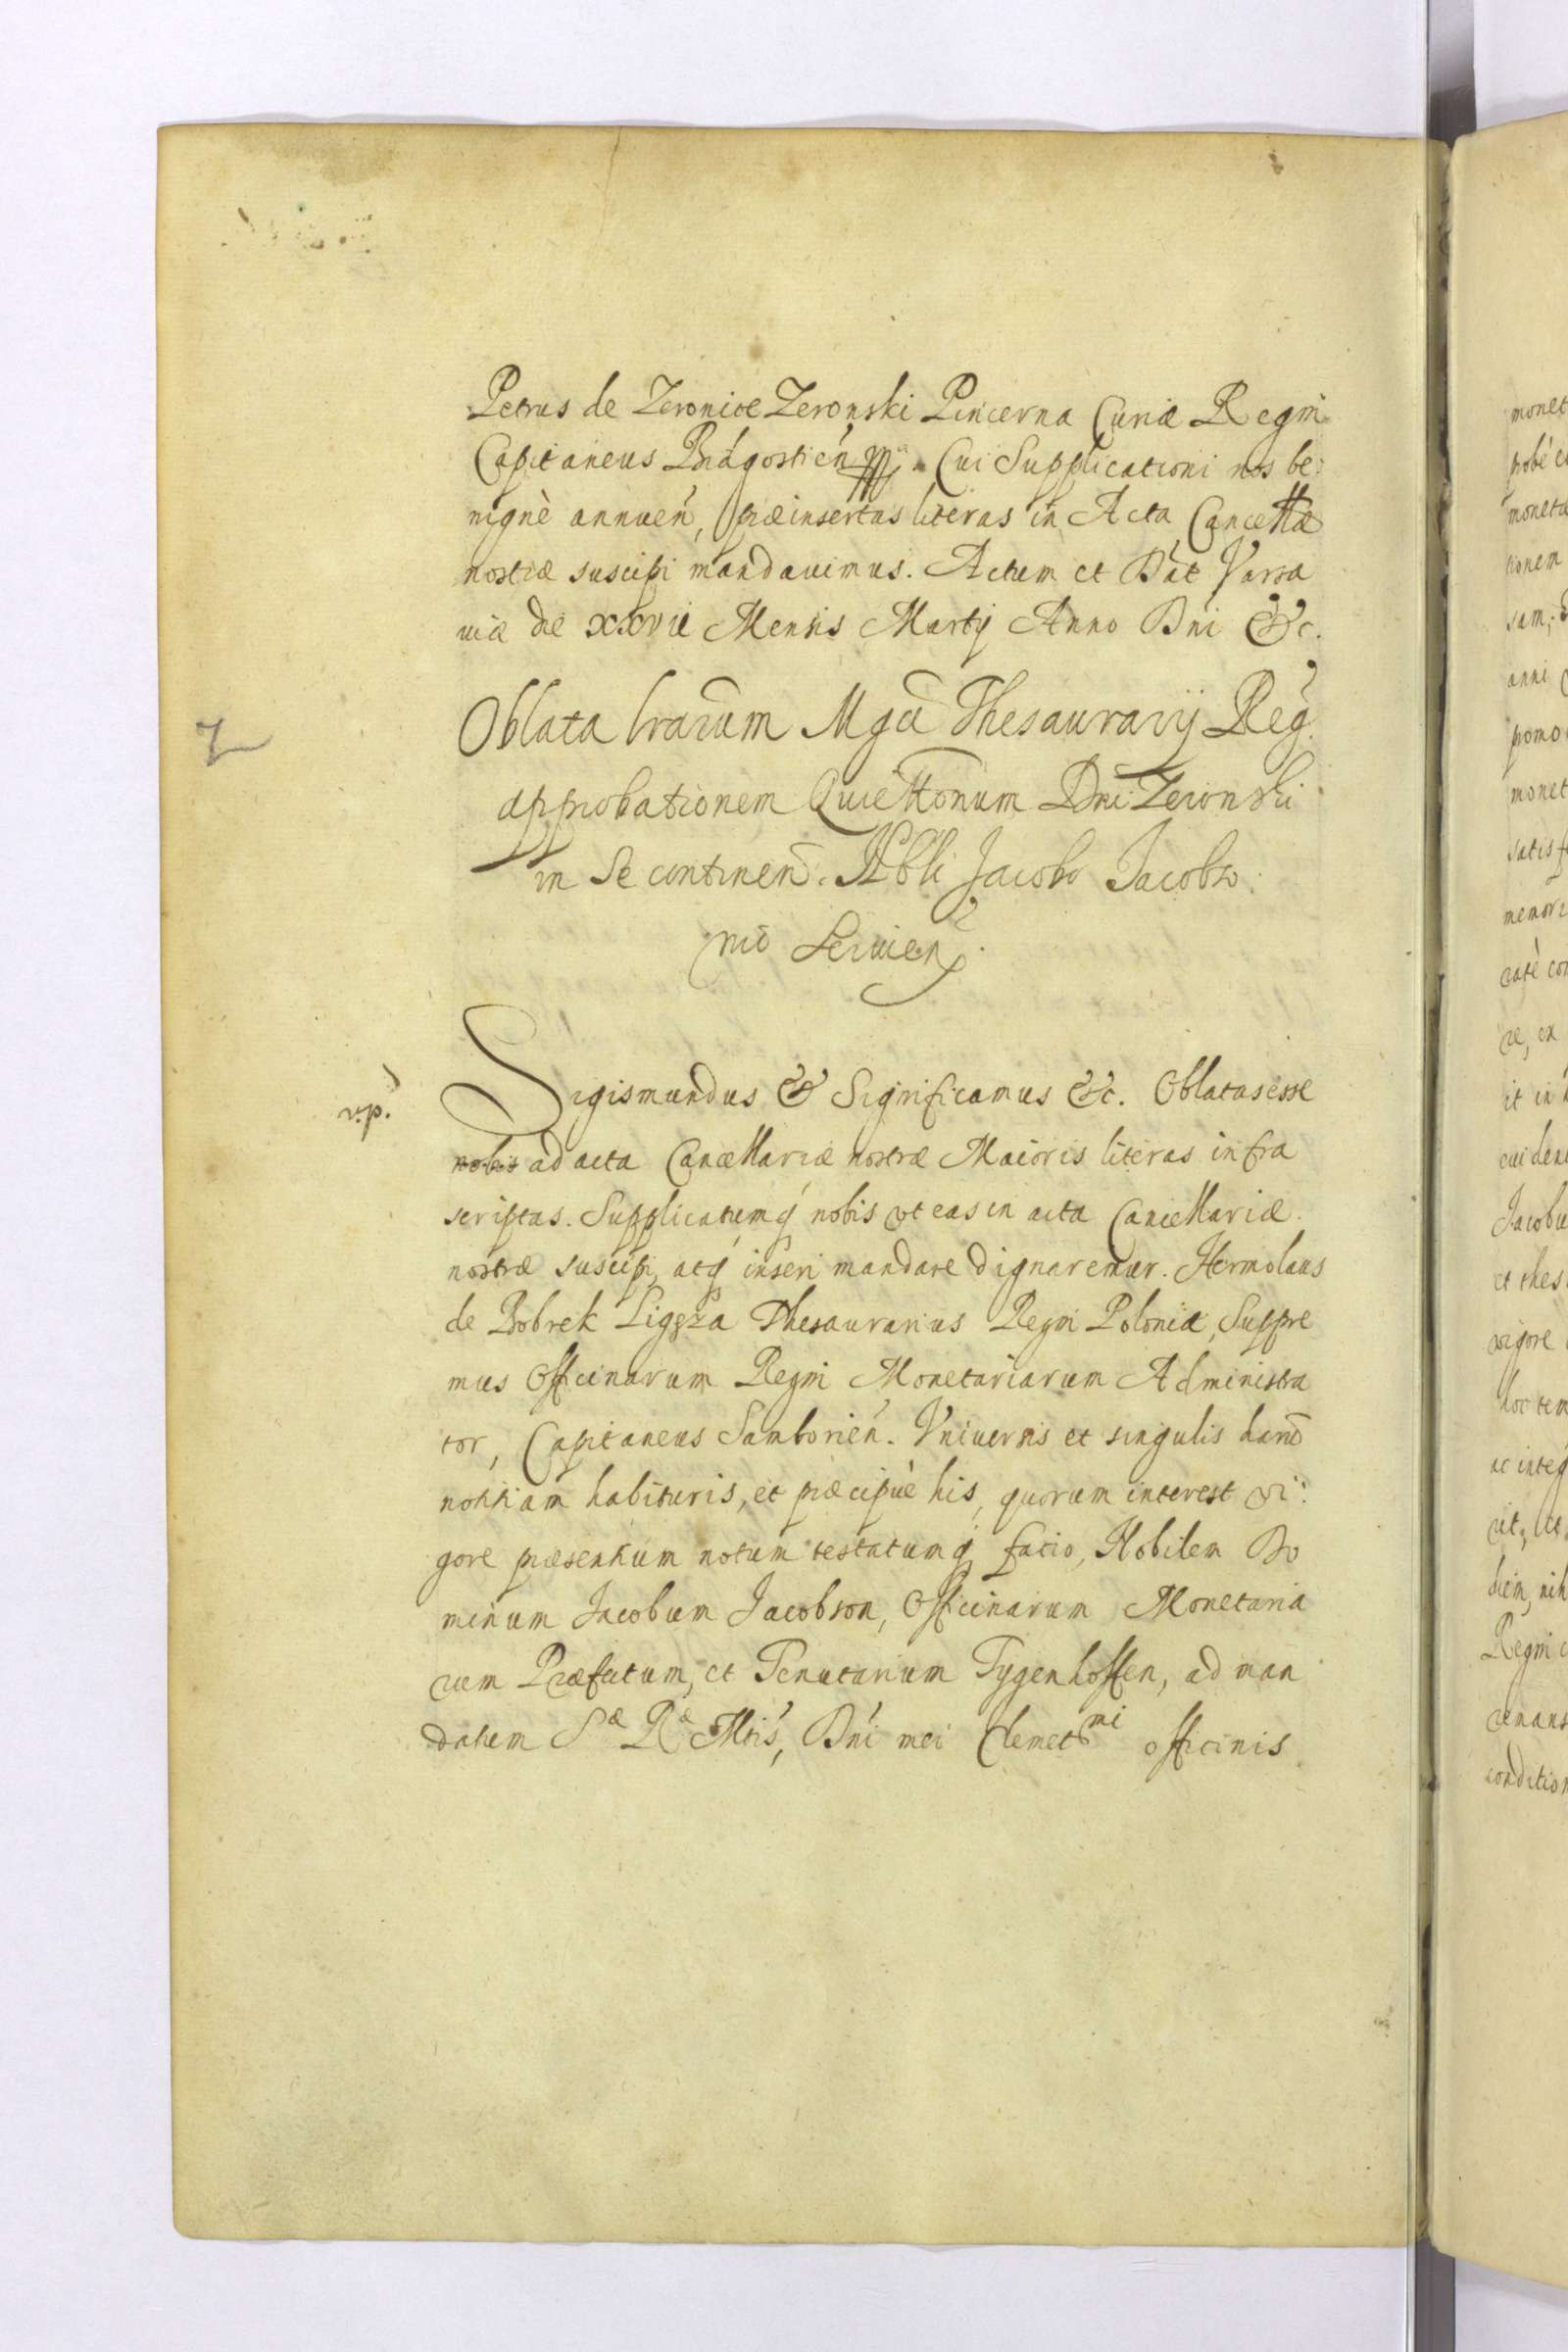 Petrus de Zeronice Zeronski Pincerna Curiæ Regni
Capitaneus Bidgostien̄ Cui Supplicationi nos be:
nignè annuen̄, præinsertas literas in Acta Cancellæ
nostræ suscipi mandauimus. Actum et Dat Varsa
uiæ die xxvii Mensis Martij Anno Dni &c.
Oblata lrarum Mgci Thesaurarij Reg.
approbationem Quiettonum Dni Zeronski
in se continen̄. Nbli Jacobo Jacobso:
nio Seruien̄.
rp.
Sigismundus & Significamus &c. Oblatas esse
nobis ad acta Cancellariæ nostræ Maioris literas infra
scriptas. Supplicatumq́ nobis vt eas in acta Cancellariæ
nostræ suscipi, atq́ inseri mandare dignaremur. Hermolaus
de Bobrek Ligęza Thesaurarius Regni Poloniæ, Supre
mus Officinarum Regni Monetariarum Administra
tor, Capitaneus Samborien̄. Vniuersis et singulis harū
notitiam habituris, et præcipuè his, quorum interest vi:
gore præsentium notum testatumq́ facio, Nobilem Do
minum Jacobum Jacobson, Officinarum Monetaria
rum Præfectum, et Tenutarium Tygenhoffen, ad man
datum Sæ Ræ Mtis, Dni mei Clemetmi officinis